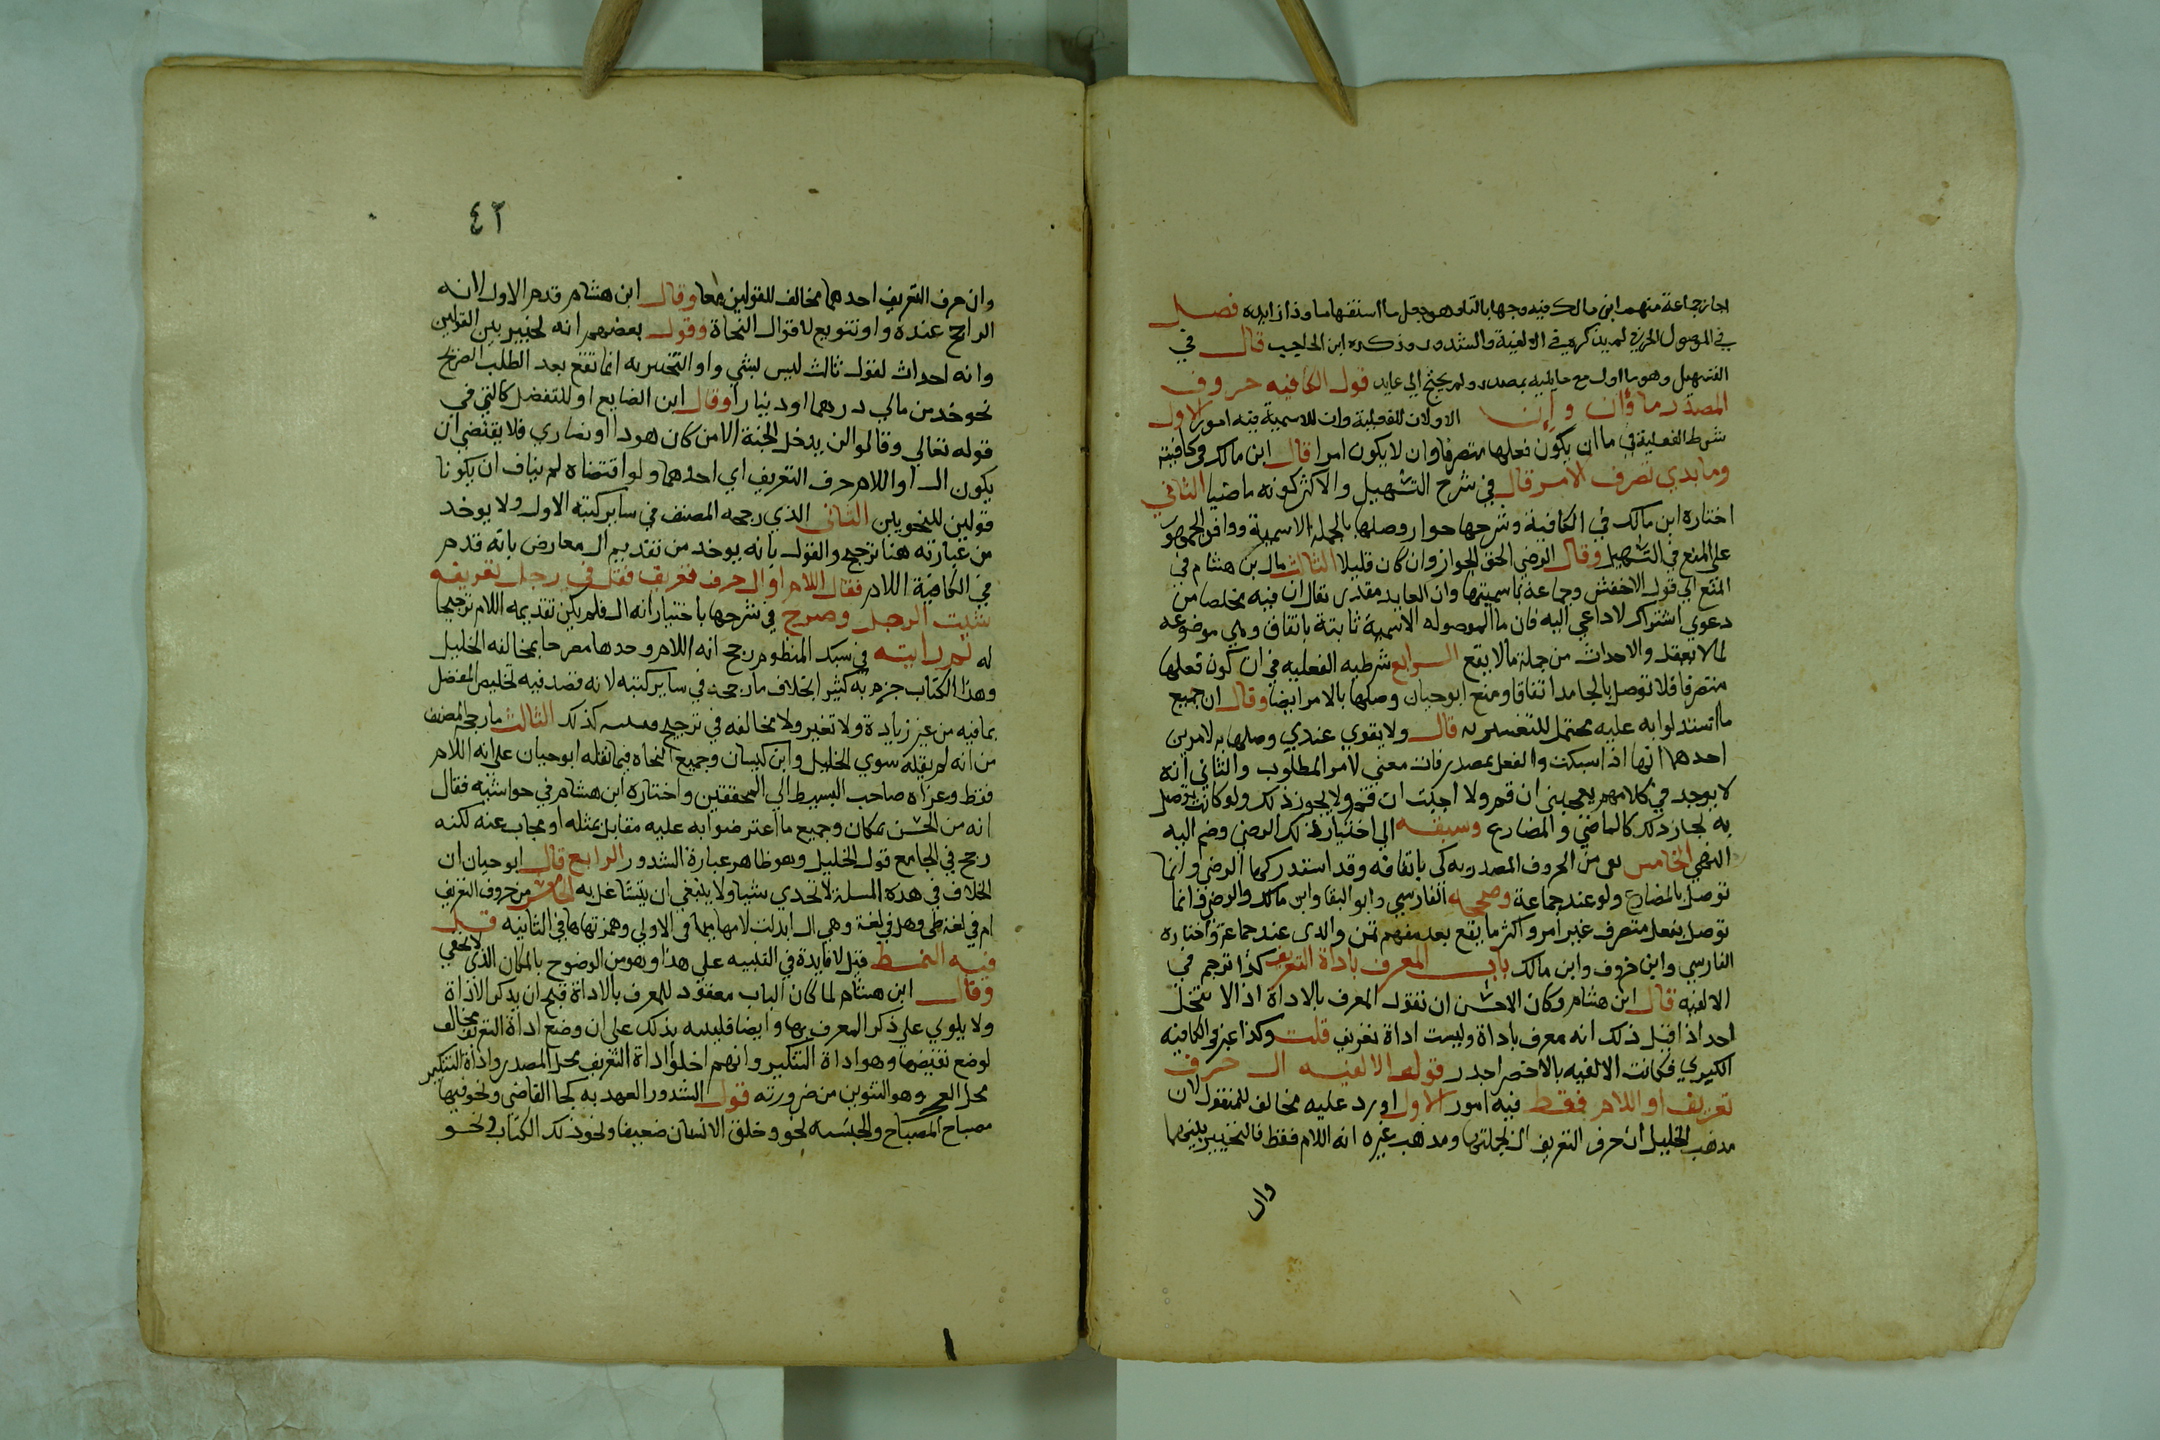 اجاز جماعة منهم ابن مالك فيه وجها بالنا وهو جعل ما استفهاما وذا زايدة فصل
في الموصول الحرفي لم يذكره في الالفية والشذور وذكره ابن الحاجب قال في
التسهيل وهو ما اول مع ما يليه بمصدر ولم يحتج الي عايد قول الكافيه حروف
المصدر ما وان و إن الاولان للفعلية وان للاسمية فيه امور الاول
شرط الفعلية في ما ان يكون فعلها متصرفا وان لا يكون امرا قال ابن مالك في كافيته
وما بدي تصرف لا امر قال في شرح التسهيل والاكثر كونه ماضيا الثاني
اختاره ابن مالك في الكافية وشرحها جواز وصلها بالجملة الاسمية ووافق الجمهور
علي المنع في التسهيل وقال الرضي الحق الجواز وان كان قليلا الثالث مال بن هشام في
المغني الي قول الاخفش وجماعة باسميتها وان العايد مقدر فقال ان فيه تخلصا من
دعوي اشتراك لا داعي اليه فان ما الموصوله الاسمية ثابتة باتفاق وهي موضوعه
لما لا يعقل والاحداث من جملة ما لا يعقل الرابع شرطيه الفعليه في ان كون فعلها
متصرفا فلا توصل بالجامد اتفاقا ومنع ابو حيان وصلها بالامر ايضا وقال ان جميع
ما استدلوا به عليه محتمل للتفسيريه قال ولا يقوي عندي وصلها به لامرين
احدهما انها اذا سبكت والفعل بمصدر فات معني الامر المطلوب والثاني انه
لا يوجد في كلامهم يعجبني ان قم ولا احببت ان قم ولا يجوز ذلك ولو كانت توصل
به لجاز ذلك كالماضي والمضارع وسبقه الي اختيار ذلك الرضي وضم اليه
النهي الخامس بقي من الحروف المصدريه كي باتفاقه وقد استدركها الرضي وانما
توصل بالمضارع ولو عند جماعة وصححه الفارسي وابو البقا وابن مالك والرضي وانما
توصل بفعل متصرف غير امر واكثر ما يقع بعد مفهم تمن والذي عند جماعة واختاره
الفارسي وابن خروف وابن مالك باب المعرف باداة التعريف كذا ترجم في
الالفيه قال ابن هشام وكان الاحسن ان نقول المعرف بالاداة اذ لا يتخيل
احد اذا قيل ذلك انه معرف باداة وليست اداة تعريف قلت وكذا عبر في الكافيه
الكبري فكانت الالفيه بالاختصار اجدر قوله الالفيه ال حرف
تعريف او اللام فقط فيه امور الاول اورد عليه مخالف للمنقول لان
مذهب الخليل ان حرف التعريف ال بجملتها ومذهب غيره انه اللام فقط فالتخيير بينهما
وان
٤٢
وان حرف التعريف احدهما مخالف للقولين معا وقال ابن هشام قدم الاول لانه
الراجح عنده واو تنويع لاقوال النحاة وقول بعضهم انه تخيير بين القولين
وانه احداث لقول ثالث ليس بشي واو التخييريه انما تقع بعد الطلب الصريح
نحو خذ من مالي درهما او دينارا وقال ابن الضايع او للتفصيل كالتي في
قوله تعالي وقالوا لن يدخل الجنة الا من كان هودا او نصاري فلا يقتضي ان
يكون ال او اللام حرف التعريف اي احدهما ولو اقتضاه لم يناف ان يكونا
قولين للنحويين الثاني الذي رجحه المصنف في ساير كتبه الاول ولا يوخذ
من عبارته هنا ترجيح والقول بانه يوخذ من تقديم ال معارض بانه قدم
في الكافية اللام فقال اللام او ال حرف تعريف فقل في رجل تعريفه
شيت الرجل وصرح في شرحها باختيار انه ال فلم يكن تقديمه اللام ترجيحا
له ثم رايته في سبك المنظوم رجح انه اللام وحدها مصرحا بمخالفه الخليل
وهذا الكتاب جزم به كثير ابخلاف ما رجحه في ساير كتبه لانه قصد فيه تخليص المفصل
بما فيه من غير زيادة ولا تغير ولا مخالفه في ترجيح كذلك الثالث ما رجحه المصنف
من انه لم يقله سوي الخليل وابن كيسان وجميع النحاه فيما نقله ابو حيان علي انه اللام
فقط وعزاه صاحب البسيط الي المحققين واختاره ابن هشام في حواشيه فقال
انه من الحسن بمكان وجميع ما اعترضوا به عليه مقابل بمثله او مجاب عنه لكنه
رجح في الجامع قول الخليل وهو ظاهر عبارة الشذور الرابع قال ابو حيان ان
الخلاف في هذه المسلة لا تجدي شيا ولا ينبغي ان يتشاغل به الخامس من حروف التعريف
ام في لغة طي وهل في لغة وهي ال ابدلت لامها ميما في الاولي وهمزتها ها في الثانيه قبل
فيه النمط قيل لا فايدة في التنبيه علي هذا وهو من الوضوح بالمكان الذي لا يخفي
وقال ابن هشام لما كان الباب معقود للمعرف بالاداة قبح ان يذكر الاداة
ولا يلوي علي ذكر المعرف بها وايضا فلينبه بذلك علي ان وضع اداة التعريف مخالف
لوضع نقيضها وهو اداة التنكير وانهم احلوا اداة التعريف محل المصدر واداة التنكير
محل العجز وهو التنوين من ضرورته قول الشذور العهديه كجا القاضي ونحو فيها
مصباح المصباح والجنسيه نحو وخلق الانسان ضعيفا ونحو ذلك الكتاب ونحو